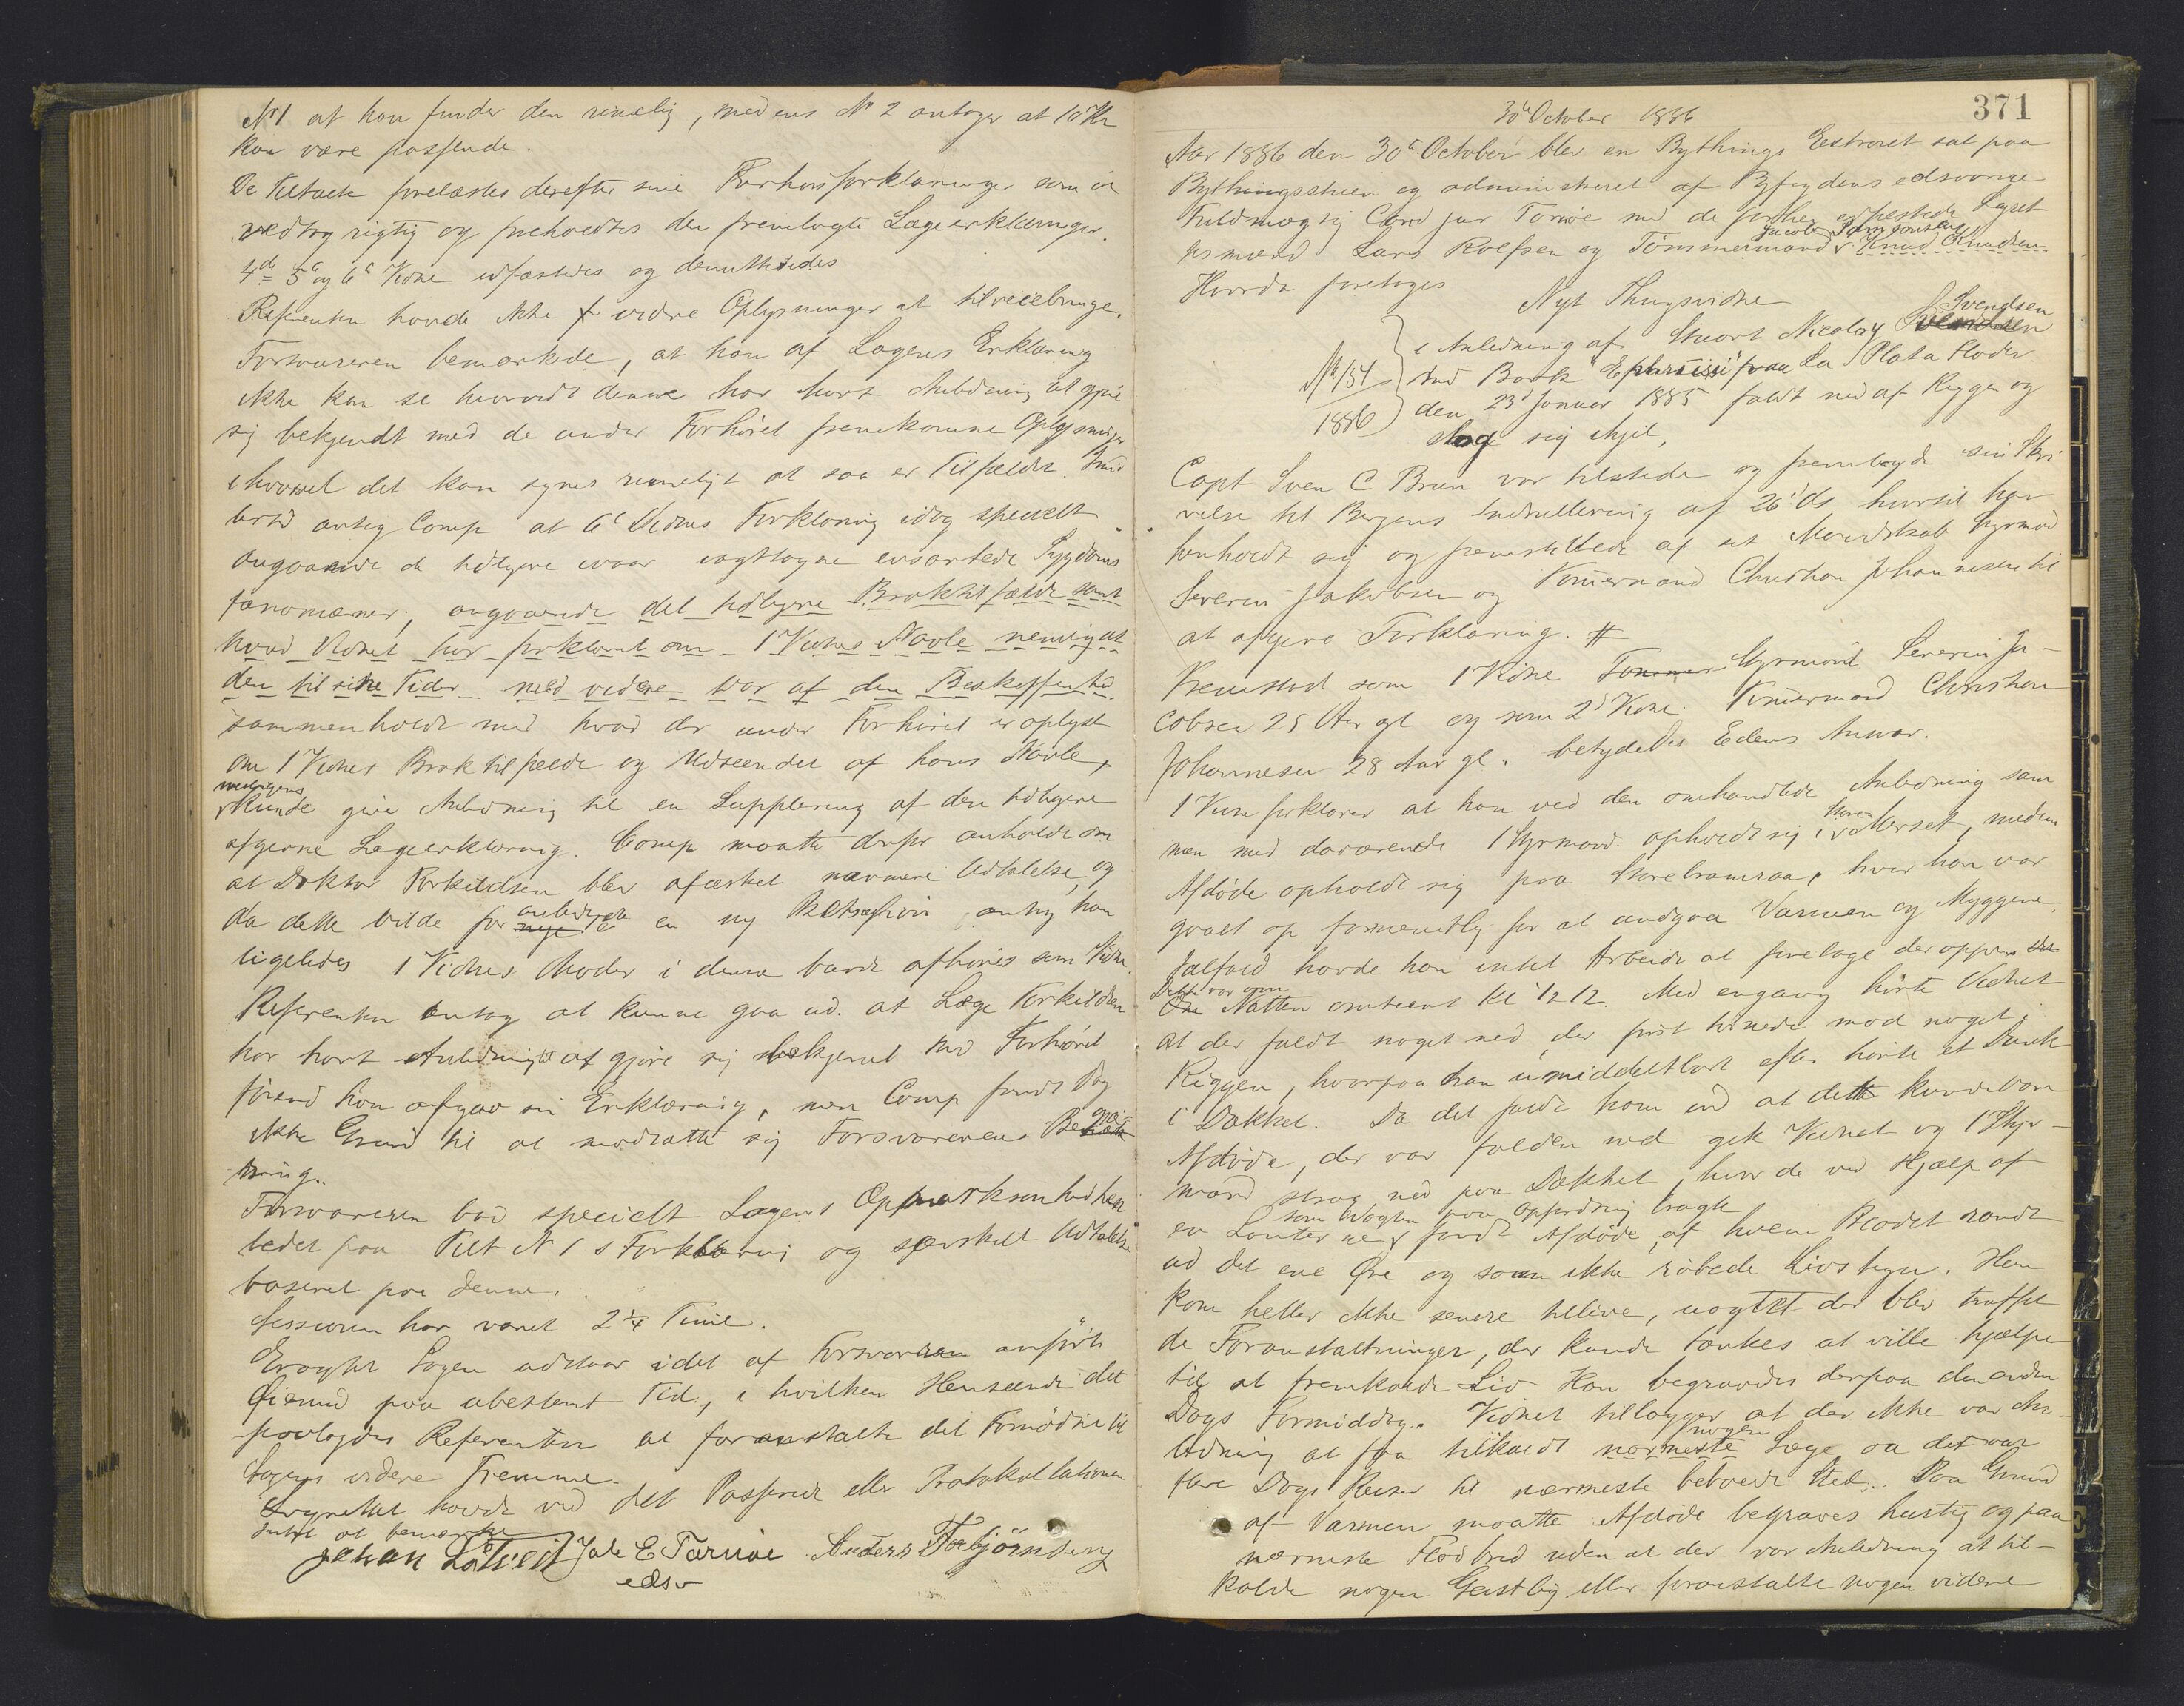 No 1 at han finder den rimelig, medens No 2 antager at 10 Kr
kan være passende.
De tiltalte forelæstes derefter sine Forhørsforklaringer som de
vedtog rigtig og foreholdtes de fremlagte Lægeerklæringer.
4de 5te og 6te Vidne edfæstedes og demitteredes
Referenten havde ikke videre Oplysninger at tilveiebringe.
Forsvareren bemærkede, at han af Lægens Erklæring
ikke kan se hvorvidt denne har havt Anledning til at gjøre
sig bekjendt med de under Forhøret fremkomne Oplysninger
ihvorvel det kan synes rimeligt at saa er Tilfældet. Imid
lertid antog Comp at 6te Vidnes Forklaring idag specielt
angaaende de tidligere iagttagne ensartede Sygdoms
fænomæner, angaaende det tidligere Broktilfælde samt
hvad Vidnet har forklaret om 1 Vidnes Navle nemlig at
den til sine Tider med videre var af den Beskaffenhed
sammenholdt med hvad der under Forhøret er oplyst
om 1 Vidnes Broktilfælde og Udseendet af hans Navle,
muligens
kunde give Anledning til en Supplering af den tidligere
afgivne Lægeerklæring. Comp maatte derfor anholde om
at Doktor Torkildsen blev afæsket nærmere Udtalelse og
da dette vilde foranledige en ny Retssession, antog han
ligeledes 1 Vidnes Moder i denne burde afhøres som Vidne.
Referenten antog at kunne gaa ud at Læge Torkildsen
har havt Anledning til at gjøre sig bekjendt med Forhøret
førend han afgav sin Erklæring, men Comp fandt dog
ikke Grund til at modsætte sig Forsvarerens Begjæ
ring.
Forsvareren bad specielt Lægens Opmærksomhed hen
ledet paa Tilt No 1 s Forklaring og særskilt Udtalelse
baseret paa denne.
Sessionen har varet 2 1/4 Time.
Eragtet Sagen udstaar i det af Forsvareren anførte
Øiemed paa ubestemt Tid, i hvilken Henseende det
paalagdes Referenten at foranstalte det Fornødne til
Sagens videre Fremme.
Lagrettet havde ved det Passerede eller Protokollationen
Intet at bemærke
Johan Lothveit Jak E Tornøe Anders Torbjørnsen
edsv
371
30te October 1886
Aar 1886 den 30te October blev en Bythings Extraret sat paa
Bythingsstuen og administreret af Byfogdens edsvorne
Fuldmægtig Cand jur Tornøe med de forhen edfæstede Lagret
Jacob Samsonsen
tesmænd Lars Rolfsen og Tømmermand Knud Knudsen.
Hvorda foretoges
Nyt Thingsvidne
Svendsen
i Anledning af Stuart Nicolay Svendsen
No 154
1886
Ind Bark "Ephrussi" paa La Plata Floden
den 23de Januar 1885 faldt ned af Riggen og
slog sig ihjel,
Capt Sven C Brun var tilstede og fremlagde sin Skri
velse til Bergens Indrullering af 26de ds, hvortil han
henholdt sig og fremstillede af sit Mandskab Styrmand
Severin Jakobsen og Tømmermand Christian Johannesen til
at afgive Forklaring. #
Fremstod som 1 Vidne Tømmer Styrmand Severin Ja-
cobsen 25 Aar gl og som 2det Vidne Tømmermand Christian
Johannesen 28 Aar gl. betydedes Edens Ansvar.
1 Vidne forklarer at han ved den omhandlede Anledning sam
Store
men med daværende 1 Styrmand opholdt sig i Merset, medens
Afdøde opholdt sig paa Storebramraa, hvor han var
gaaet op formentlig for at undgaa Varmen og Myggene.
Ialfald havde han intet Arbeide at foretage deroppe.
Dette var om
Natten omtrent Kl 1/2 12. Med engang hørte Vidnet
at der faldt noget ned, der først tørnede mod noget i
Riggen, hvorpaa han umiddelbart efter hørte et Dunk
i Dækket. Da det faldt ham ind at dette kunde være
Afdøde, der var falden ned gik Vidnet og 1 Styr-
mand strax ned paa Dækket, hvor de ved Hjælp af
som Vagten paa Opfordring bragte
en Lanterne fandt Afdøde, af hvem Blodet randt
ud det ene Øre og som ikke røbede Livstegn. Han
kom heller ikke senere tillive, uagtet der blev truffet
de Foranstaltninger, der kunde tænkes at ville hjælpe
til at fremkalde Liv. Han begravdes derpaa den anden
Dags Formiddag. Vidnet tillægger at der ikke var An-
nogen
ledning at faa tilkaldt nærmeste Læge, da det var
flere Dags Reise til nærmeste beboede Sted. Paa Grund
af Varmen maatte Afdøde begraves hurtig og paa
nærmeste Flodbred uden at der var Anledning at til-
kalde nogen Geistlig eller foranstalte nogen videre